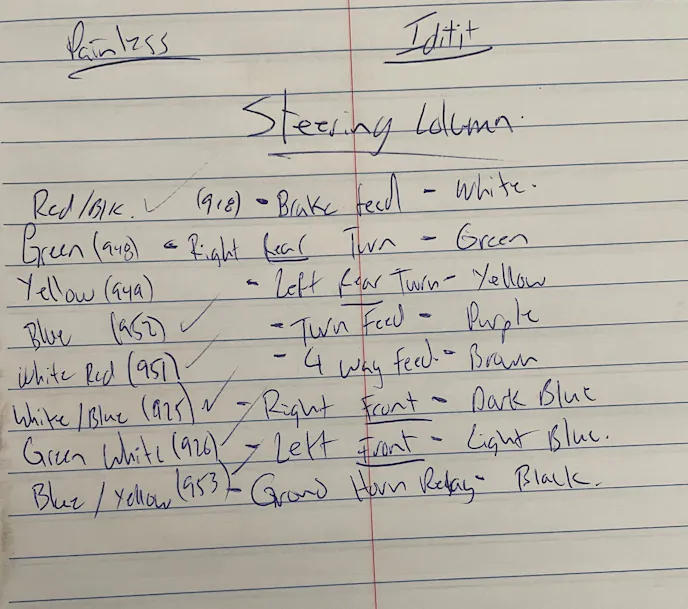 Painless Iditit
Steering Column.
Red/Blk. (918) - Brake feed - White.
Green (948) - Right Rear Turn - Green
Yellow (949) - Left Rear Turn - Yellow
Blue (952) - Turn Feed - Purple
White Red (951) - 4 way feed - Brown
White/Blue (925) - Right Front - Dark Blue
Green White (926) - Left Front - Light Blue.
Blue/Yellow (953) - Ground Horn Relay - Black.